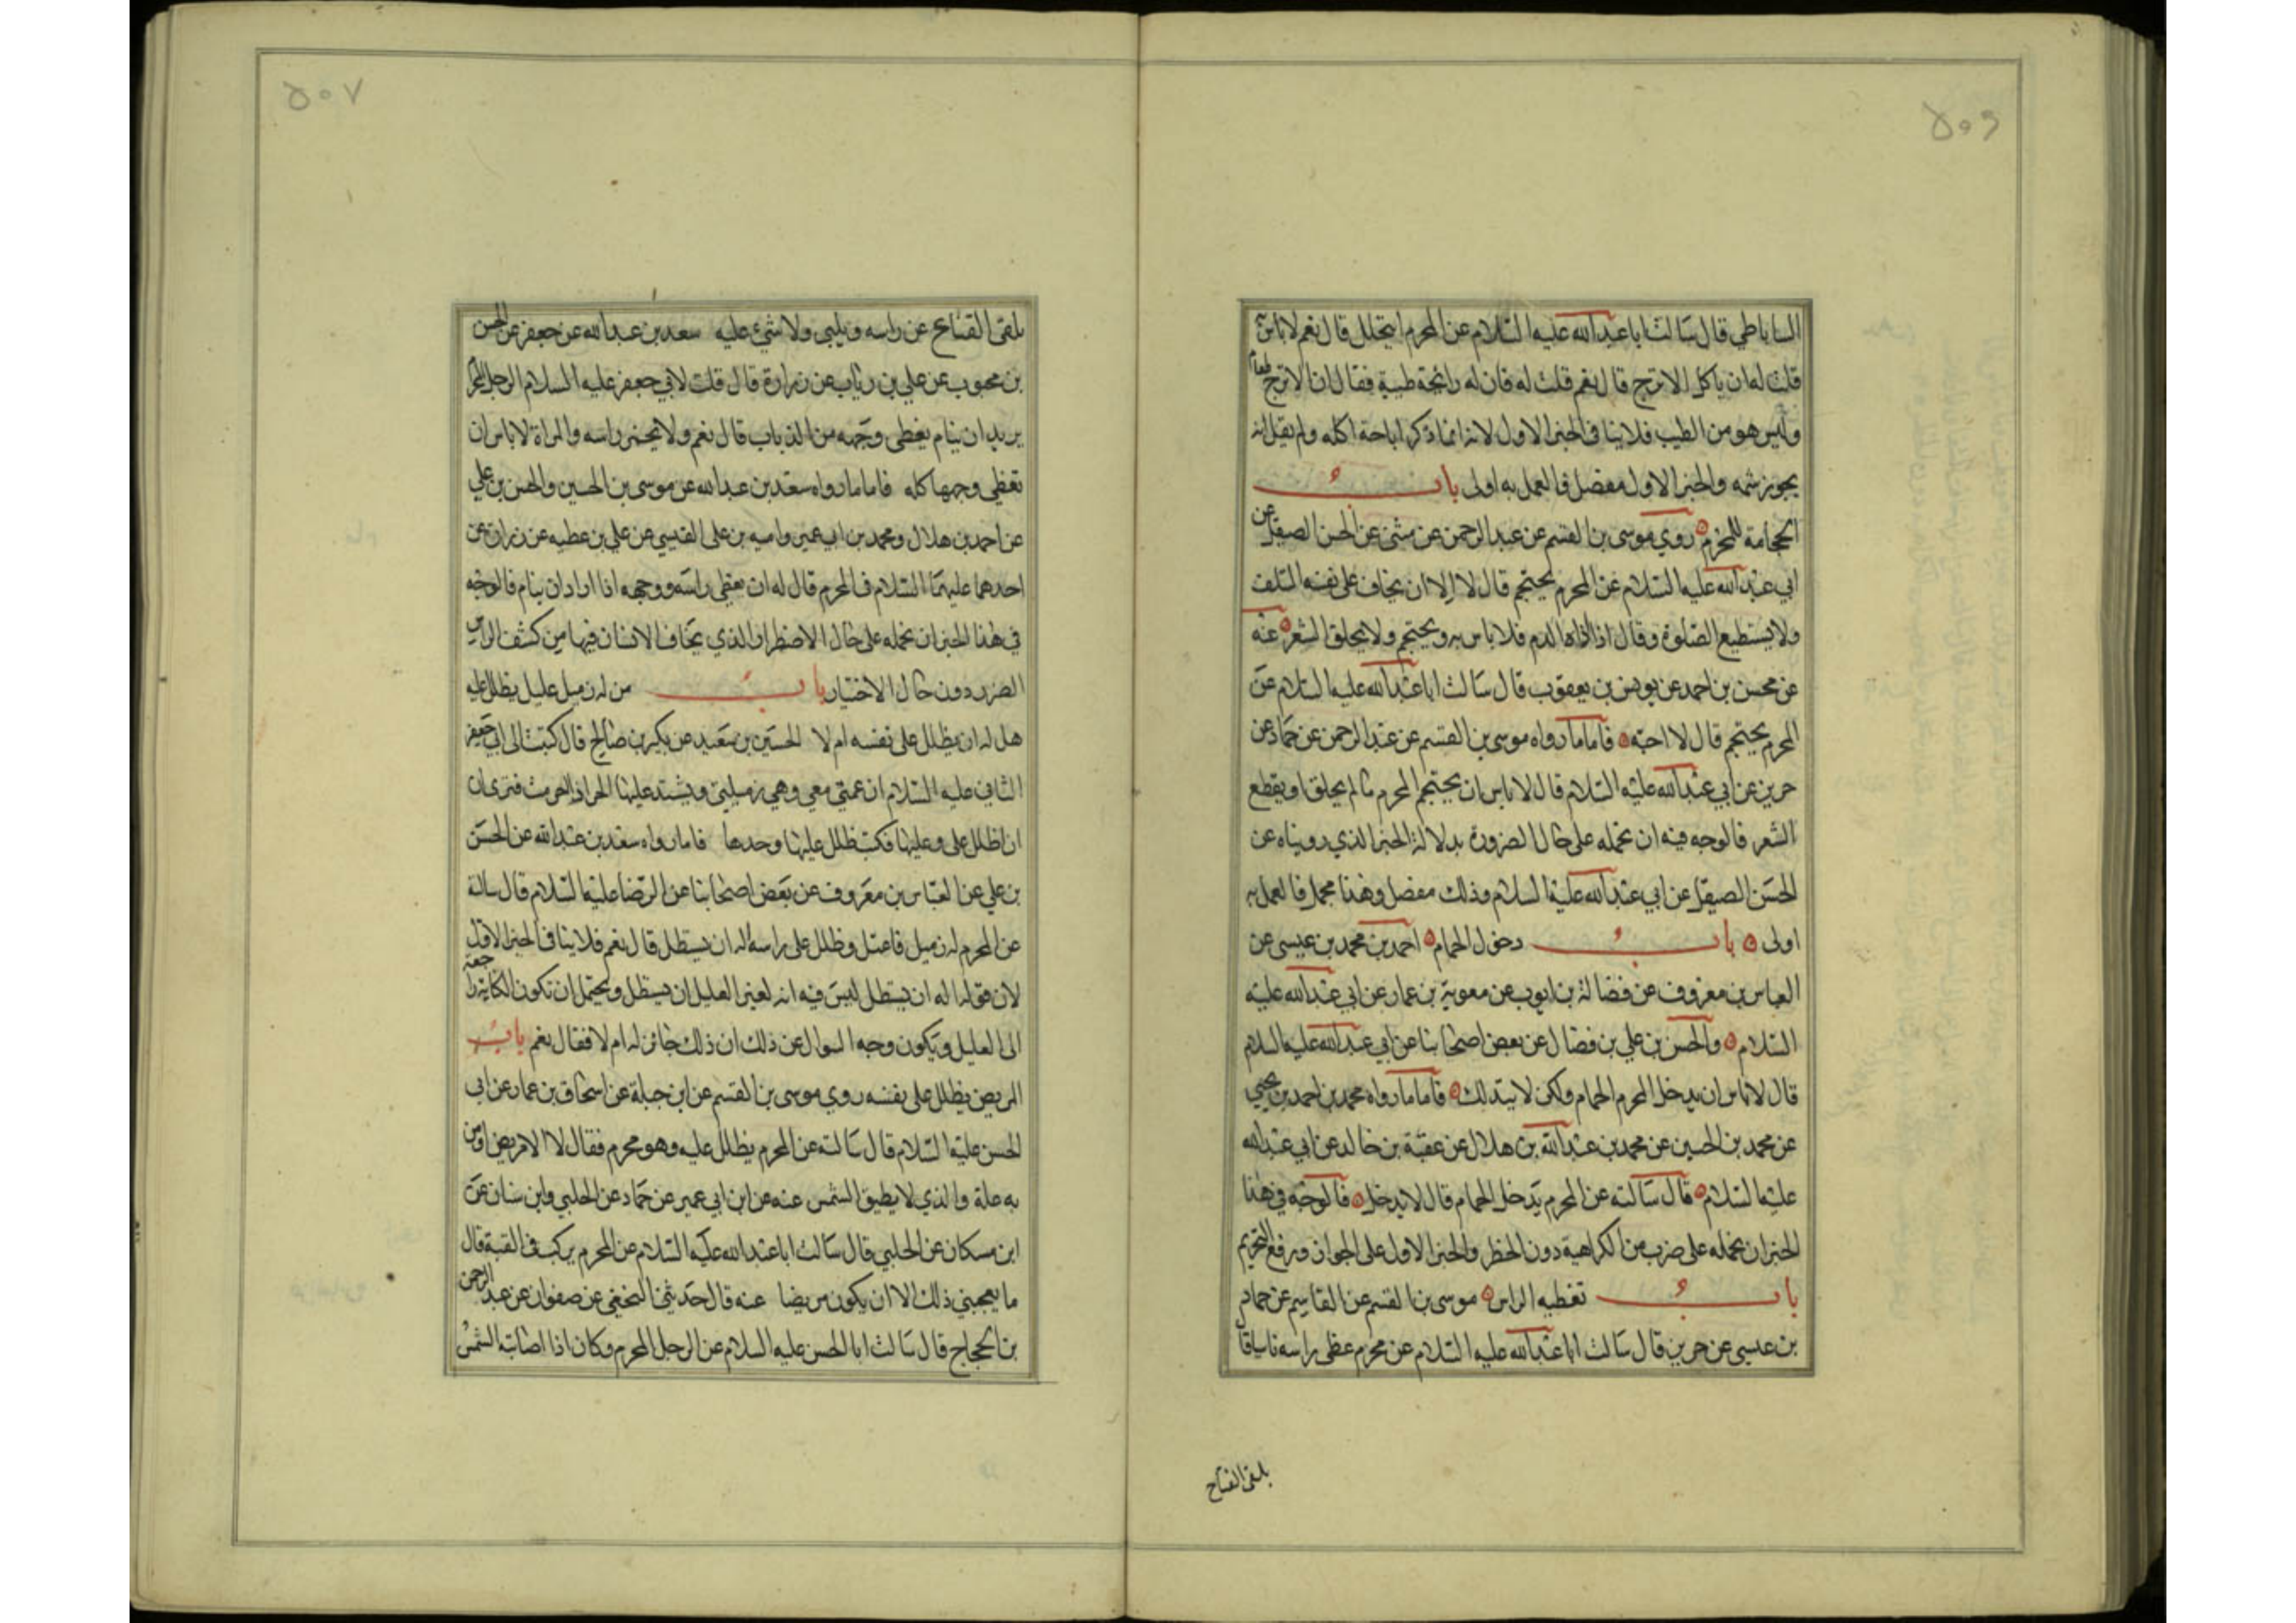 ٥٠٦
الساباطي قال سالت ابا عبدالله عليه السلام عن المحرم ايتخلل قال نعم لاباس به
قلت له ان ياكل الاترج قال نعم قلت له فان له رايحة طيبة فقال ان الاترج طعام
وليس هو من الطيب فلاينافى الخبر الاول لانه انما ذكر اباحة اكله ولم يقل انه
يجوز شمه والخبر الاول مفصل فالعمل به اولى باب
الحجامة للمحرم روي موسى بن القسم عن عبدالرحمن عن مثنى عن الحسن الصيقل عن
ابي عبدالله عليه السلام عن المحرم يحتجم قال لا الا ان يخاف على نفسه التلف
ولايستطيع الصلوة وقال اذا اذاه الدم فلاباس به ويحتجم ولايحلق الشعر عنه
عن محسن بن احمد عن يونس بن يعقوب قال سالت اباعبدالله عليه السلام عن
المحرم يحتجم قال لا احبه فاما مارواه موسى بن القسم عن عبدالرحمن عن حماد عن
حريز عن ابي عبدالله عليه السلام قال لاباس ان يحتجم المحرم مالم يحلق او يقطع
الشعر فالوجه فيه ان نحمله على حال الضرورة بدلالة الخبر الذي رويناه عن
الحسن الصيقل عن ابي عبدالله عليه السلام وذلك مفصل وهذا مجمل فالعمل به
اولى باب دخول الحمام احمد بن محمد بن عيسى عن
العباس بن معروف عن فضالة بن ايوب عن معوية بن عمار عن ابي عبدالله عليه
السلام والحسن بن علي بن فضال عن بعض اصحابنا عن ابي عبدالله عليه السلام
قال لاباس ان يدخل المحرم الحمام ولكن لايتدلك فاما مارواه محمد بن احمد بن يحيى
عن محمد بن الحسين عن محمد بن عبدالله بن هلال عن عقبة بن خالد عن ابي عبدالله
عليه السلام قال سالته عن المحرم يدخل الحمام قال لايدخل فالوجه في هذا
الخبر ان نحمله على ضرب من الكراهية دون الحظر والخبر الاول على الجواز ورفع التحريم
باب تغطيه الراس موسى بن القسم عن القاسم عن حماد
بن عيسى عن حريز قال سالت اباعبدالله عليه السلام عن محرم غطى راسه ناسيا قال
يلقى القناع
٥٠٧
يلقى القناع عن راسه ويلبى ولاشئ عليه سعد بن عبدالله عن جعفر عن الحسن
بن محبوب عن علي بن رياب عن زرارة قال قلت لابي جعفر عليه السلام الرجل المحرم
يريد ان ينام يغطى وجهه من الذباب قال نعم ولايخمر راسه والمراة لاباس ان
تغطى وجهها كله فاما مارواه سعد بن عبدالله عن موسى بن الحسين والحسن بن علي
عن احمد بن هلال ومحمد بن ابي عمير واميه بن على القيسي عن علي بن عطيه عن زرارة عن
احدهما عليهما السلام في المحرم قال له ان يغطى راسه ووجهه اذا اراد ان ينام فالوجه
في هذا الخبر ان نحمله على حال الاضطرار الذي يخاف الانسان فيها من كشف الراس
الضرر دون حال الاختيار باب من له زميل عليل يظلل عليه
هل له ان يظلل على نفسه ام لا الحسين بن سعيد عن بكير بن صالح قال كتبت الى ابي جعفر
الثاني عليه السلام ان عمتى معي وهي زميلتي ويشتد عليها الحر اذا احرمت فترى ان
ان اظلل على وعليها فكتب ظلل عليها وحدها فاما رواه سعد بن عبدالله عن الحسن
بن علي عن العباس بن معروف عن بعض اصحابنا عن الرضا عليه السلام قال سالته
عن المحرم له زميل فاعتل وظلل على راسه اله ان يستظل قال نعم فلاينافى الخبر الاول
لان قوله اله ان يستظل ليس فيه انه لغير العليل ان يستظل ويحتمل ان تكون الكناية راجعة
الى العليل ويكون وجه السوال عن ذلك ان ذلك جائز له ام لا فقال نعم باب
المريض يظلل على نفسه روي موسى بن القسم عن ابن جبلة عن اسحاق بن عمار عن ابى
الحسن عليه السلام قال سالته عن المحرم يظلل عليه وهو محرم فقال لا الا مريض او من
به علة والذي لايطيق الشمس عنه عن ابن ابي عمير عن حماد عن الحلبي وابن سنان عن
ابن مسكان عن الحلبي قال سالت اباعبدالله عليه السلام عن المحرم يركب في القبة قال
ما يعجبني ذلك الا ان يكون مريضا عنه قال حدثني النخعي عن صفوان عن عبدالرحمن
بن الحجاج قال سالت ابا الحسن عليه السلام عن الرجل المحرم وكان اذا اصابته الشمس